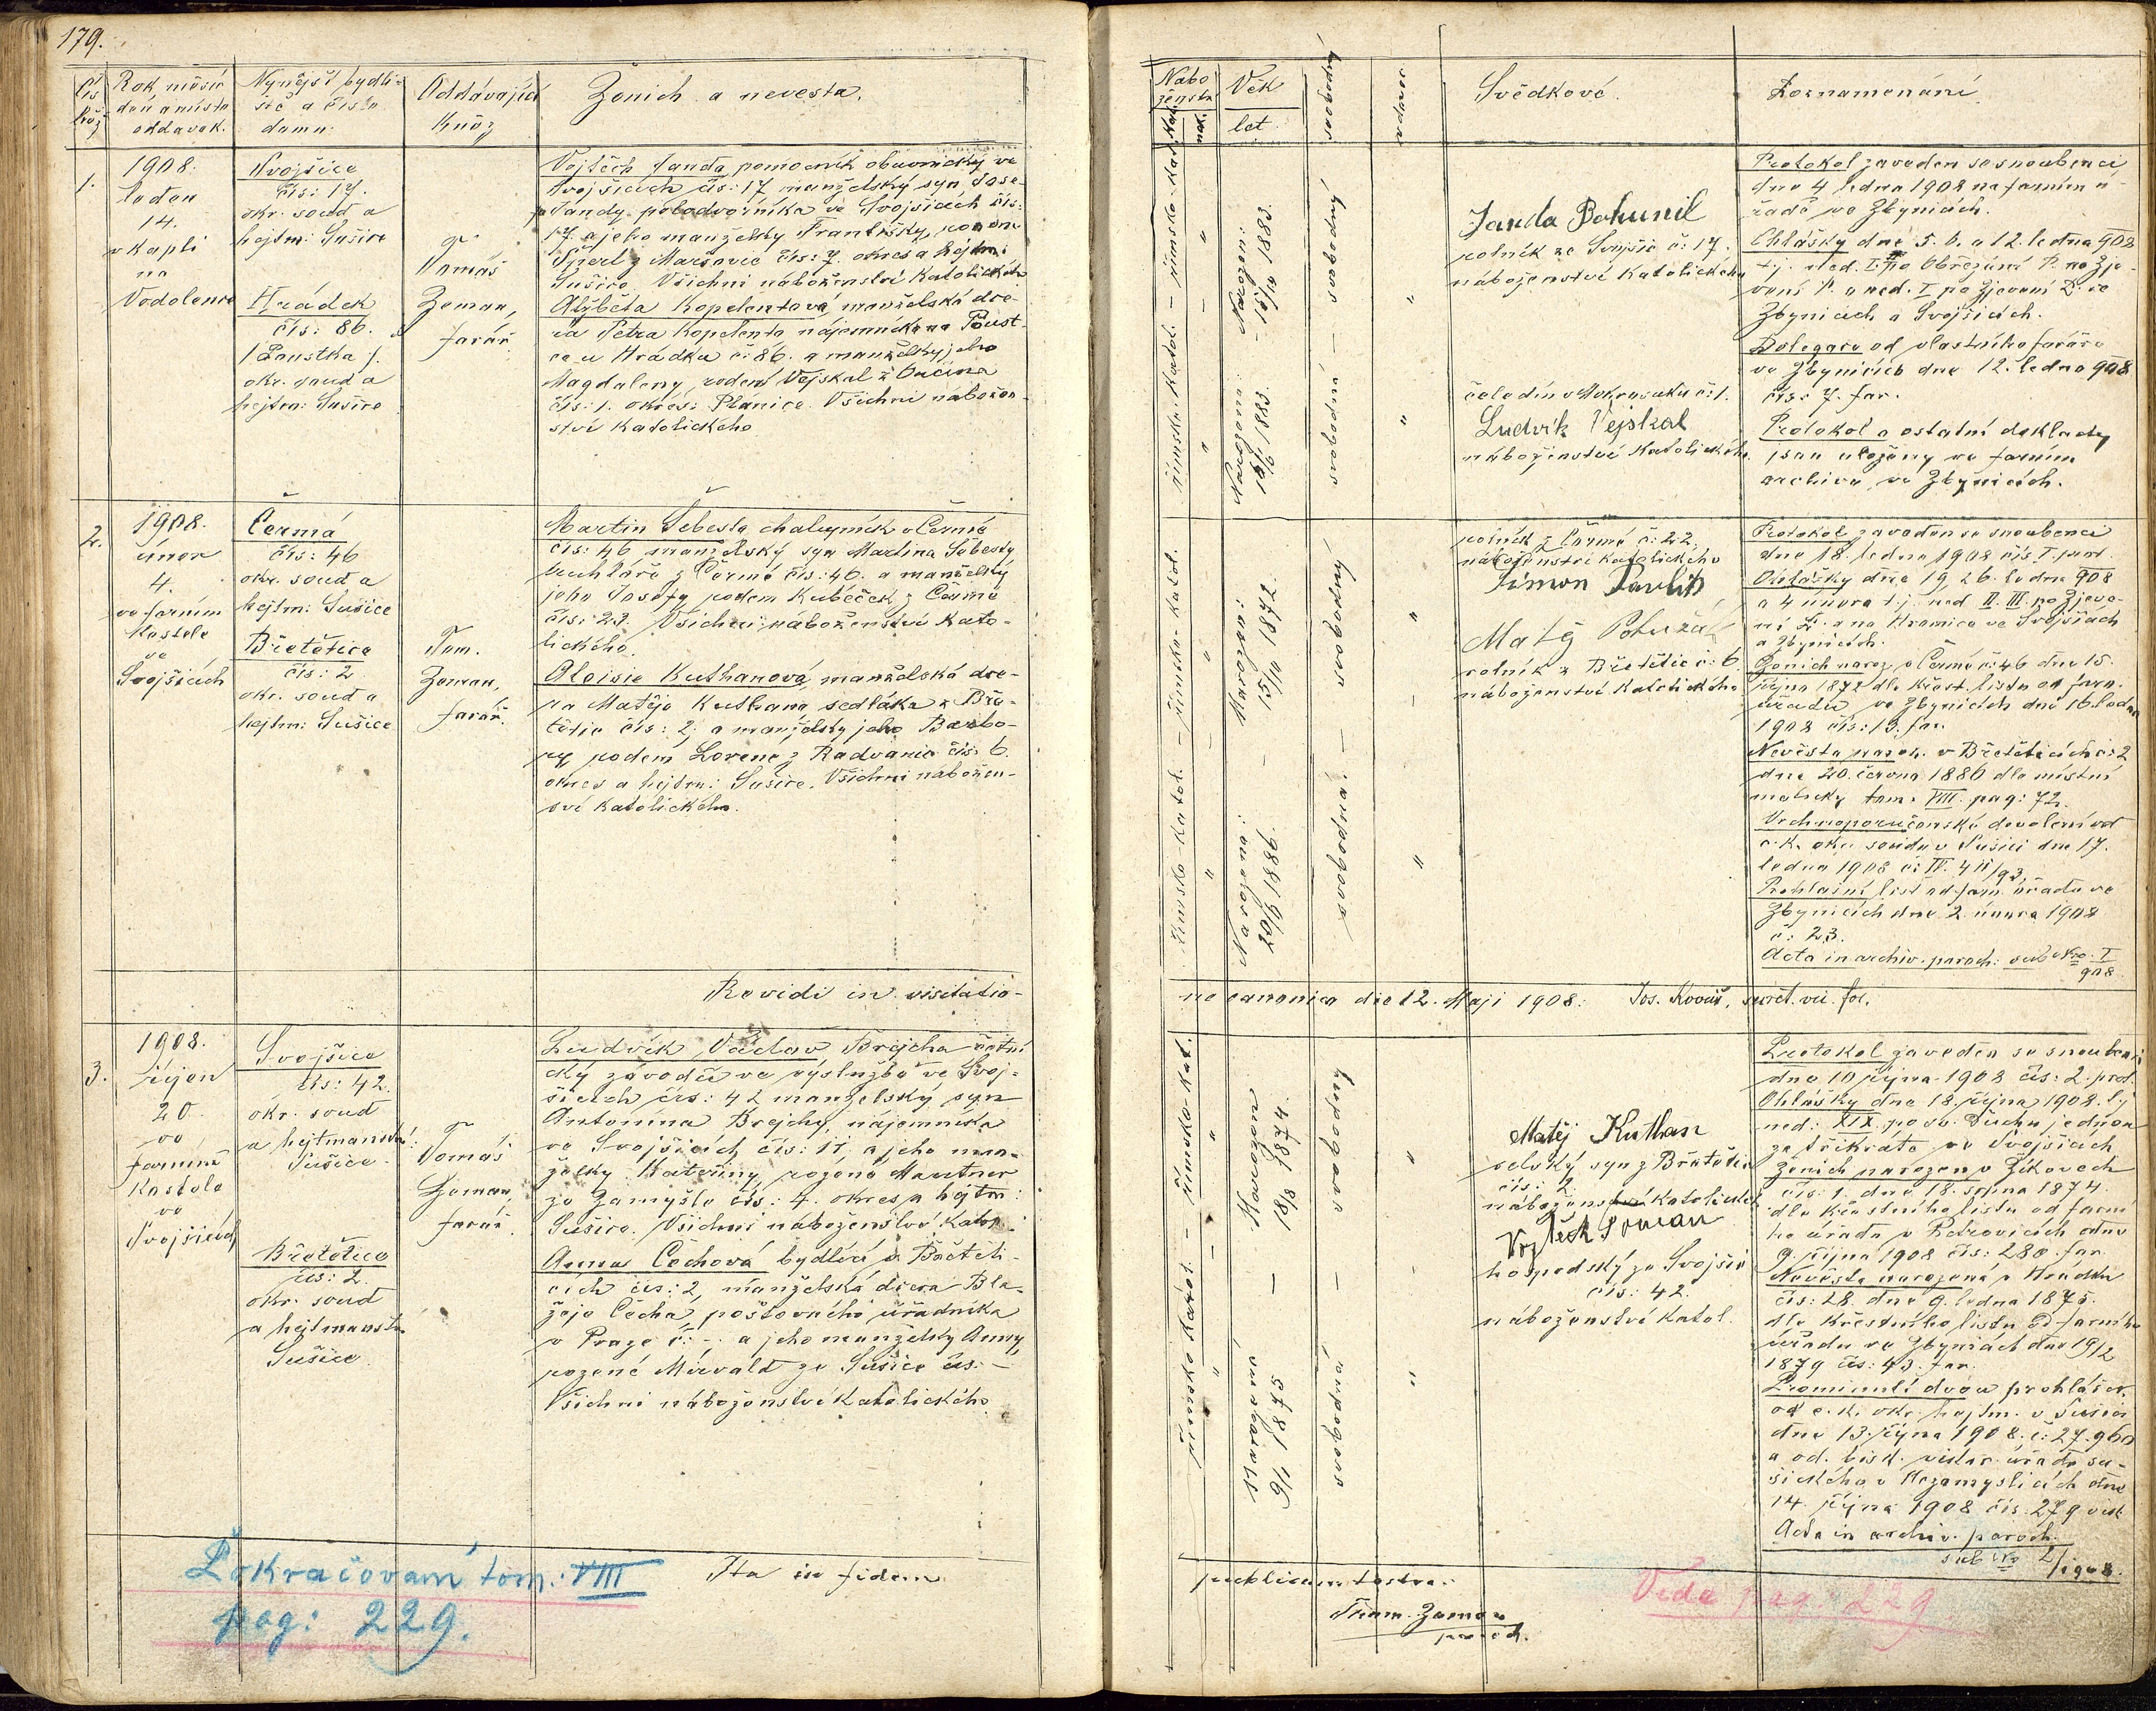 179.
Čís.
řáz
Rok měsíc
den a místo
oddavek.
Nynější bydli-
ště a číslo
domu
Oddávající
Kněz
Ženich a nevesta.
1.
1908.
leden
14.
v kapli
na
Vodolence
Svojšice
čís: 17.
okr. soud a
hejtm: Sušice
Hrádek
čís: 86.
/Poustka/.
okr. soud a
hejtm: Sušice
Tomáš
Zeman,
farář
Vojtěch Janda, pomocník obuvnický ve
Svojšicích čís: 17 manželský syn Jose-
fa Jandy polodvorníka ve Svojšicích čís:
17. a jeho manželky Františky, rozené
z Maršovic čís: 7. okres a hejtm:
Sušice. Všichni náboženství Katolického
Alžběta Kopelentová, manželská dce-
ra Petra Kopelenta nájemníka na Poust-
ce u Hrádku č: 86. a manželky jeho
Magdaleny, rodem Vejskal z
čís: 1. okres: Plánice. Všichni nábožen-
ství Katolického
2.
1908.
únor
4.
ve farním
Kostele
ve
Svojšicích
Čermá
čís: 46
okr. soud a
hejtm: Sušice
Břetětice
čís: 2
okr. soud a
hejtm: Sušice
Tom.
Zeman,
farář.
Martin Šebesta chalupník v Čermé
čís: 46 manželský syn Martina Šebesty
truhláře z Čermé čís: 46. a manželky
jeho Josefy rodem Kubeček z Čermé
čís: 23. Všichni náboženství Kato-
lického.
Aloisie Kuthanová, manželská dce-
ra Matěje Kuthana sedláka z Bře-
tětic čís: 2. a manželky jeho Barbo-
ry rodem Lorenc z Radvanic čís: 6.
okres a hejtm: Sušice. Všichni nábožen-
sví Katolického.
Revidi in visitatio-
3.
1908.
říjen
20.
ve
farním
Kostele
ve
Svojšicích
Svojšice
čís: 42.
okr. soud
a hejtmanství:
Sušice.
Břetětice
čís: 2.
okr. soud
a hejtmanstv.
Sušice.
Tomáš
Zeman,
farář.
Ludvík, Václav Brejcha četni
cký závodčí ve výslužbě ve Svoj-
šicích čís: 42 manželský syn
Antonína Brejchy, nájemníka
ve Svojšicích čís: 11, a jeho man-
želky Kateřiny, rozené Mautner
ze Zamyšle čís: 4. okres a hejtm:
Sušice. Všichni náboženství Katol.
Anna Čechová bydlící v Břetěti-
cích čís: 2, manželská dcera Bla-
žeje Čecha, poštovního úředníka
v Praze č: -. a jeho manželky Anny,
rozené Mirvald ze Sušice čís: -
Všichni náboženství Katolického.
Pokračování tom: VIII
pag: 229.
Ita in fidem
Nábo
ženstv
Kat.
nek.
Věk
let
svobodný
vdovec
Svědkové.
Poznamenání
římsko-katol. – římsko-kat.
"
"
Narozena: – Narozen:
16/6 1883. – 15/4 1883.
svobodná – svobodný
"
"
Janda Bohumil
rolník ze Svojšic č: 17.
náboženství Katolického
čeledín v Mokrosuku č: 1.
Ludvík Vejskal
náboženství Katolického
Protokol zaveden se snoubenci
dne 4 ledna 1908 na farním ú-
řadě ve Zbynicích.
Ohlášky dne 5. 6. a 12. ledna 908
tj. ned. I. po Obřezání P. na Zje-
vení P. a ned. I po Zjevení P. ve
Zbynicích a Svojšicích.
Delegace od vlastního faráře
ve Zbynicích dne 12. ledna 908
čís: 7. far.
Protokol a ostatní doklady
jsou uloženy ve farním
archivu ve Zbynicích.
římsko-katol. – římsko-katol.
"
"
Narozena: – Narozen:
20/6 1886. – 15/10 1872.
svobodná – svobodný
"
"
rolník z Čermé č: 22.
náboženství Katolického
Šimon Pavlík
Matěj
rolník z Břetětic č: 6
náboženství Katolického
Protokol zaveden se snoubenci
dne 18. ledna 1908 čís I. prot.
Ohlášky dne 19, 26. ledna 908
a 4 února t.j. ned. II. III. po Zjeve-
ní P. a na Hromice ve Svojšicích
a Zbynicích.
Ženich naroz. v Čermé č: 46 dne 15.
října 1872 dle křest. listu od farn.
úřadu ve Zbynicích dne 16. ledna
1908 čís: 13. far.
Nevěsta naroz. v Břetěticích č: 2
dne 20. června 1886 dle místní
matriky tom. VIII. pag: 72.
Vrchnoporučenské dovolení od
c.k. okr. soudu v Sušici dne 17.
ledna 1908
Prohlašní list od farn. úřadu ve
Zbynicích dne 2. února 1908
č: 23.
Acta in archiv. paroch: sub Nro. I
908
ne canonica die 12. Maji 1908. Jos. Kovář, secret. vic. for.
římsko katol. – římsko-kat.
"
"
Narozená – Narozen
9/1 1875 – 18/8 1874.
svobodná – svobodný
"
"
Matěj Kuthan
selský syn z Břetětic
čís: 2.
náboženství Katolického
Vojtěch Soukup
hospodský ze Svojšic
čís: 42.
náboženství Katol.
Protokol zaveden se snoubenci
dne 10 října 1908 čís: 2. prot.
Ohlášky dne 18. října 1908. tj
ned: XIX. po sv. Duchu jednou
za třikráte ve Svojšicích
Ženich narozen v Žikovech
čís: 1. dne 18. srpna 1874.
dle křestního listu od farní
ho úřadu v Petrovicích dne
9. října 1908 čís: 280. far.
Nevěsta narozená v Hrádku
čís: 28. dne 9. ledna 1875.
dle křestního listu od farního
úřadu ve Zbynicích dne 19/2
1879 čís: 43. far.
Prominutí dvou prohlášek
od c.k. okr. hejtm. v Sušici
dne 13. října 1908. č: 27.960
a od bisk. vikar. úřadu su-
šického v Nezamyslicích dne
14. října 1908 čís. 279 vik
Acta in archiv. paroch.
sub Nro 2/1908.
publicam testor:
Thom. Zeman
paroch.
Vide pag 229